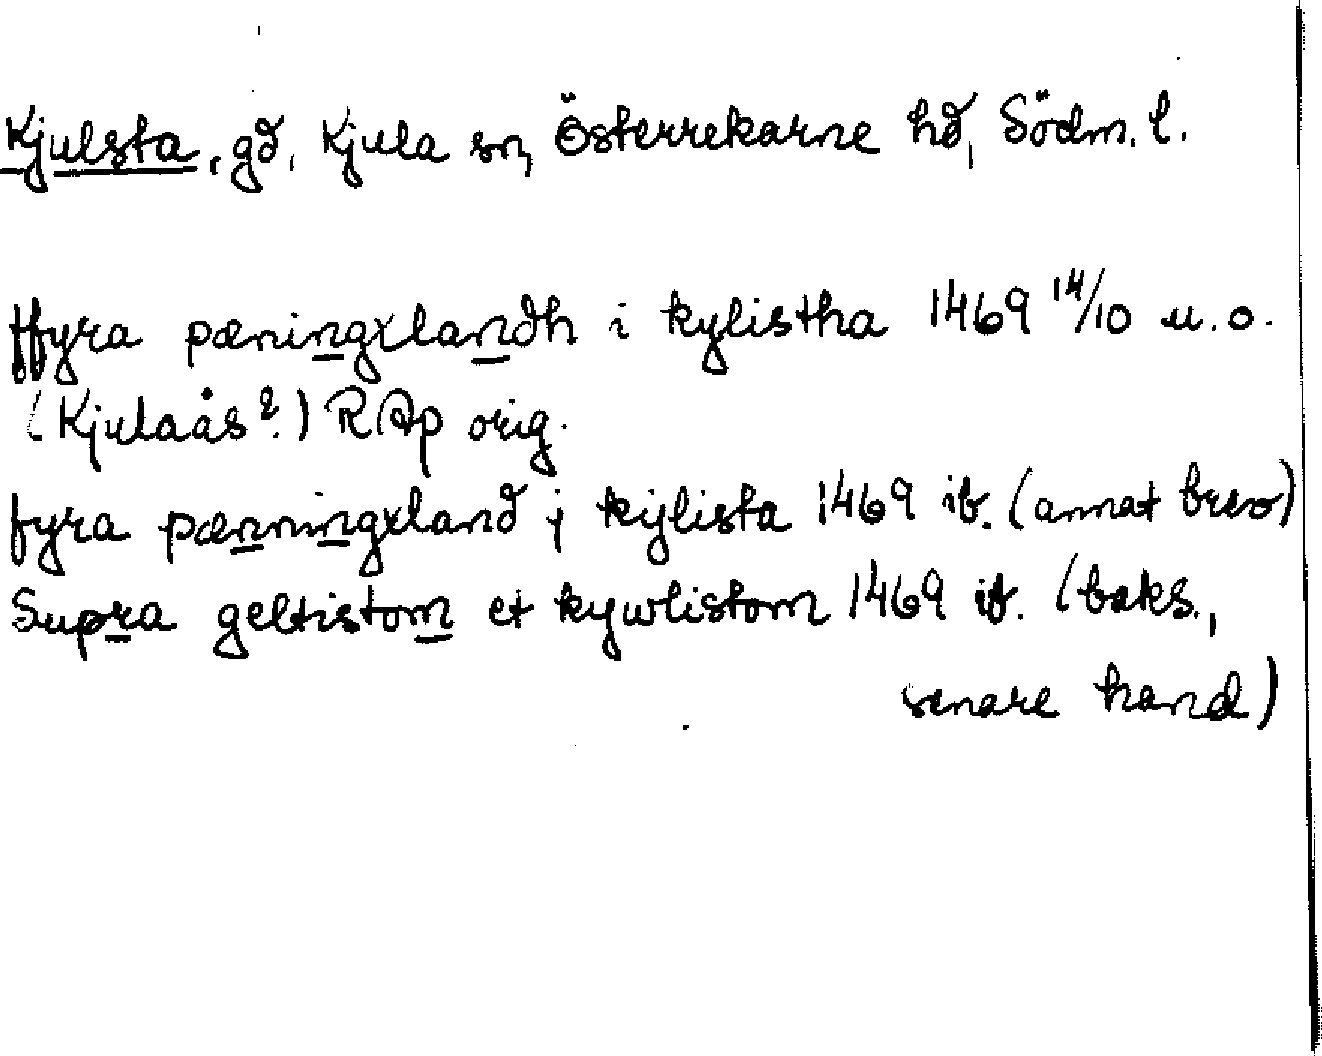 Kjulsta, gd, Kjula sn, Österrekarne hd, Södm. l.
ffyra pæningxlandh i kylistha 1469 14/10 u.o.
(Kjulaås?) RAp orig.
fyra pænningxland j kijlista 1469 ib. (annat brev)
Supra geltistom et kywlistom 1469 ib. (baks.,
senare hand)